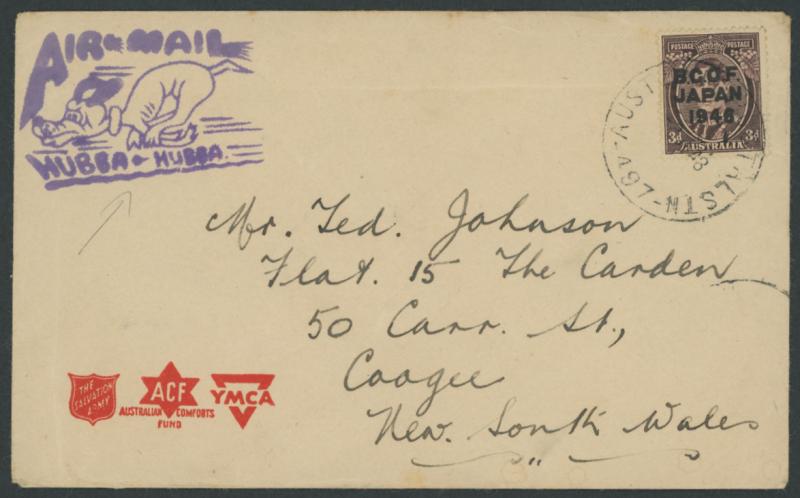 AIR-MAIL
HUBBA-HUBBA.
POSTAGE POSTAGE
B.C.O.F.
JAPAN
1946
3d 3d
AUSTRALIA
AUST
Mr. Ted. Johnson
Flat. 15 The Carden
50 Carr. St.,
Coogee
New. South Wales
THE
SALVATION
ARMY
ACF
AUSTRALIAN COMFORTS
FUND
YMCA